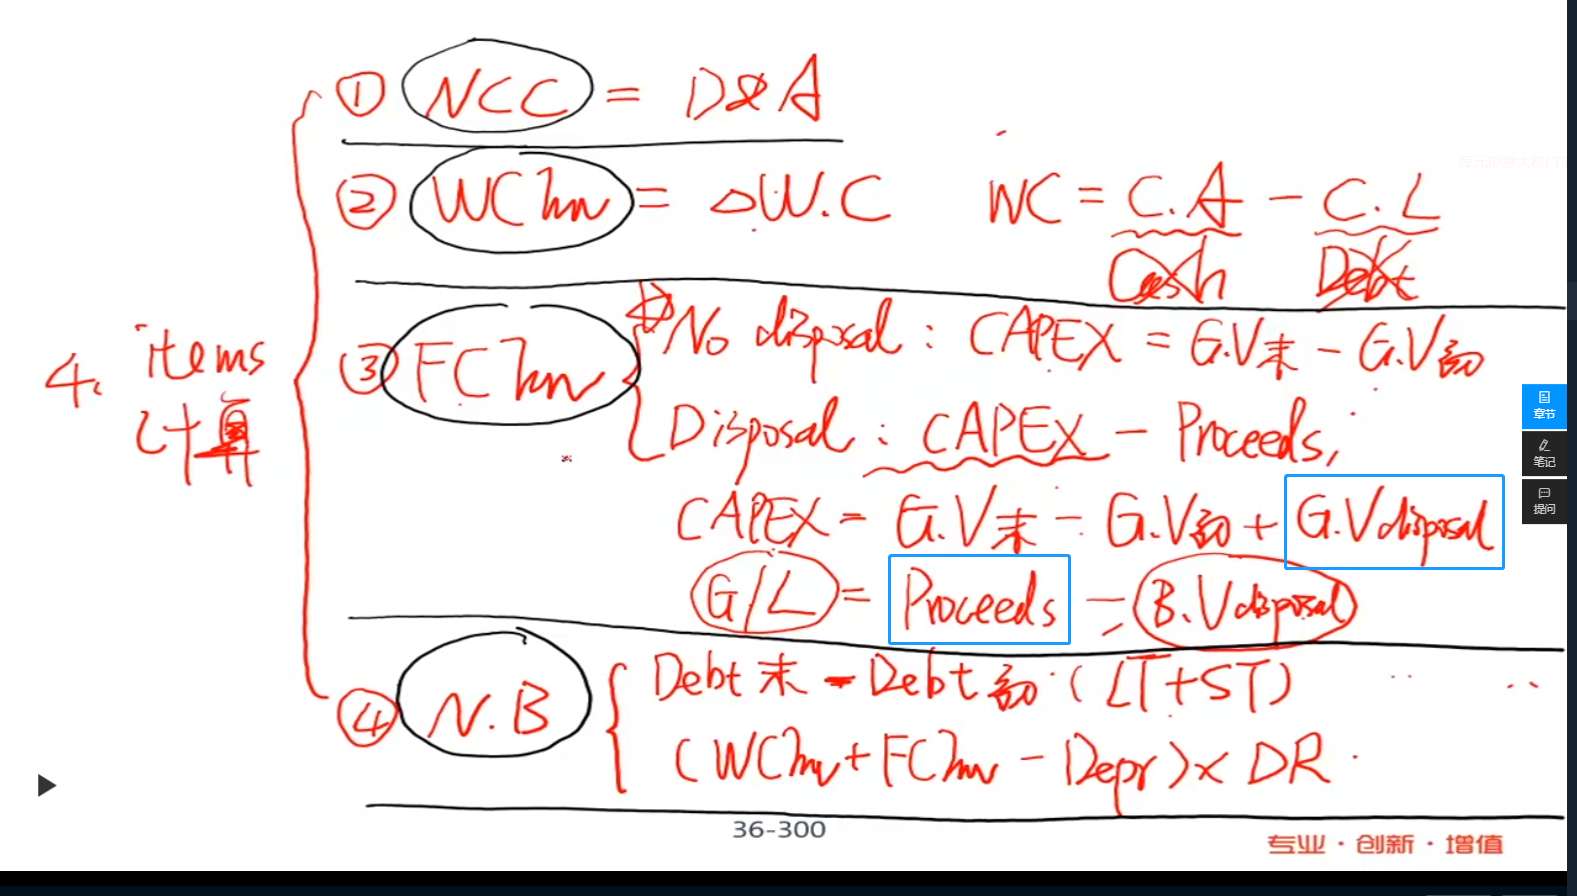 ① NCC = D&A
② WCInv = △W.C WC = C.A - C.L
Cash Debt
4. items 计算
③ FCInv No disposal : CAPEX = G.V末 - G.V初
Disposal : CAPEX - Proceeds,
CAPEX = G.V末 - G.V初 + G.V disposal
G/L = Proceeds - B.V disposal
④ N.B Debt末 - Debt初 (LT+ST)
(WCInv + FCInv - Depr) × DR
36-300
专业·创新·增值
章节
笔记
提问